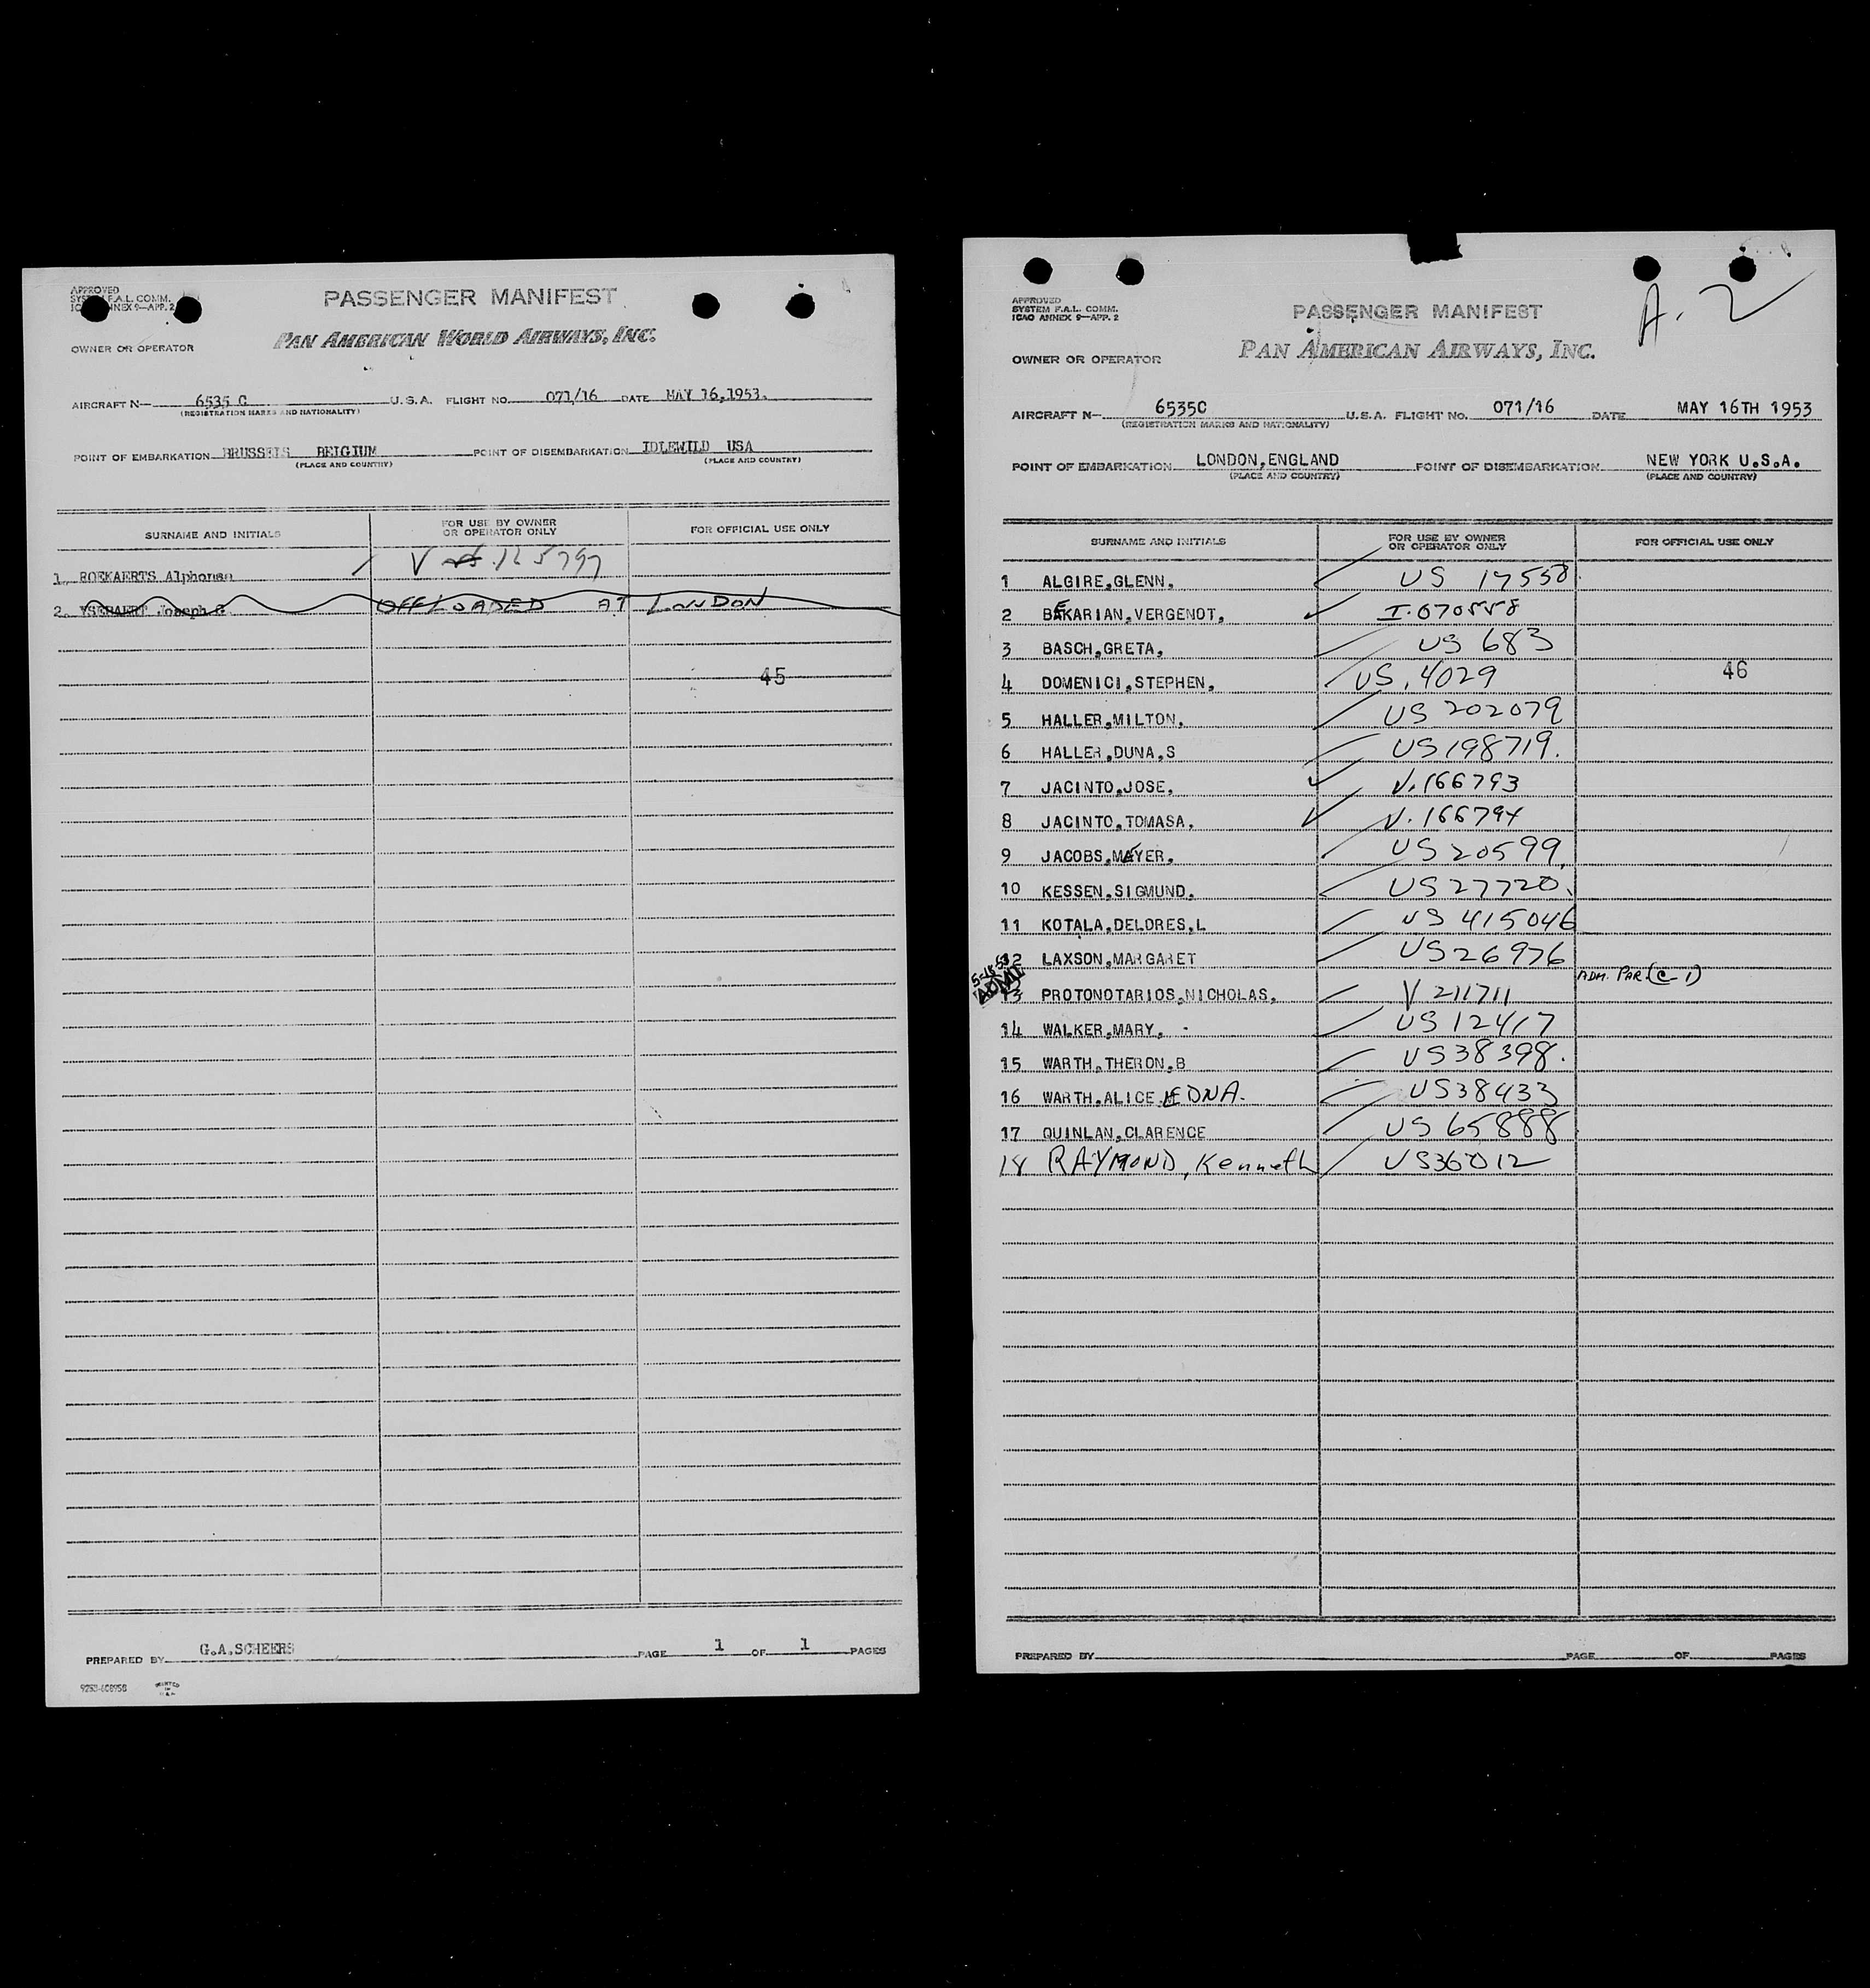 APPROVED
SYSTEM F.A.L. COMM.
ICAO ANNEX 9—APP. 2
PASSENGER MANIFEST
PAN AMERICAN WORLD AIRWAYS, INC.
OWNER OR OPERATOR
AIRCRAFT N— 6535 C U.S.A. FLIGHT NO. 071/16 DATE MAY 16,1953.
(REGISTRATION MARKS AND NATIONALITY)
POINT OF EMBARKATION BRUSSELS BELGIUM POINT OF DISEMBARKATION IDLEWILD USA
(PLACE AND COUNTRY) (PLACE AND COUNTRY)
SURNAME AND INITIALS FOR USE BY OWNER OR OPERATOR ONLY FOR OFFICIAL USE ONLY
1. ROEKAERTS Alphonse V 125797
2. YSEBAERT Joseph OFFLOADED AT LONDON
45
PREPARED BY G.A.SCHEERS PAGE 1 OF 1 PAGES
PRINTED IN U.S.A.
A. 2
APPROVED
SYSTEM F.A.L. COMM.
ICAO ANNEX 9—APP. 2
PASSENGER MANIFEST
PAN AMERICAN AIRWAYS, INC.
OWNER OR OPERATOR
AIRCRAFT N— 6535C U.S.A. FLIGHT NO. 071/16 DATE MAY 16TH 1953
(REGISTRATION MARKS AND NATIONALITY)
POINT OF EMBARKATION LONDON,ENGLAND POINT OF DISEMBARKATION NEW YORK U.S.A.
(PLACE AND COUNTRY) (PLACE AND COUNTRY)
SURNAME AND INITIALS FOR USE BY OWNER OR OPERATOR ONLY FOR OFFICIAL USE ONLY
1 ALGIRE,GLENN, US 17558
2 BEKARIAN,VERGENOT, I.070558
3 BASCH,GRETA, US 683
4 DOMENICI,STEPHEN, US. 4029 46
5 HALLER,MILTON, US 202079
6 HALLER,DUNA,S US 198719.
7 JACINTO,JOSE, V.166793
8 JACINTO,TOMASA, V.166794
9 JACOBS,MEYER, US 20599
10 KESSEN,SIGMUND, US 27720.
11 KOTALA,DELORES,L US 415046
12 LAXSON,MARGARET US 26976
13 PROTONOTARIOS,NICHOLAS, V 211711 ADM. PAR (C-1)
14 WALKER,MARY, US 12417
15 WARTH,THERON,B US 38398.
16 WARTH,ALICE EDNA. US 38433
17 QUINLAN,CLARENCE US 65888
18 RAYMOND, Kenneth US 36012
PREPARED BY PAGE OF PAGES